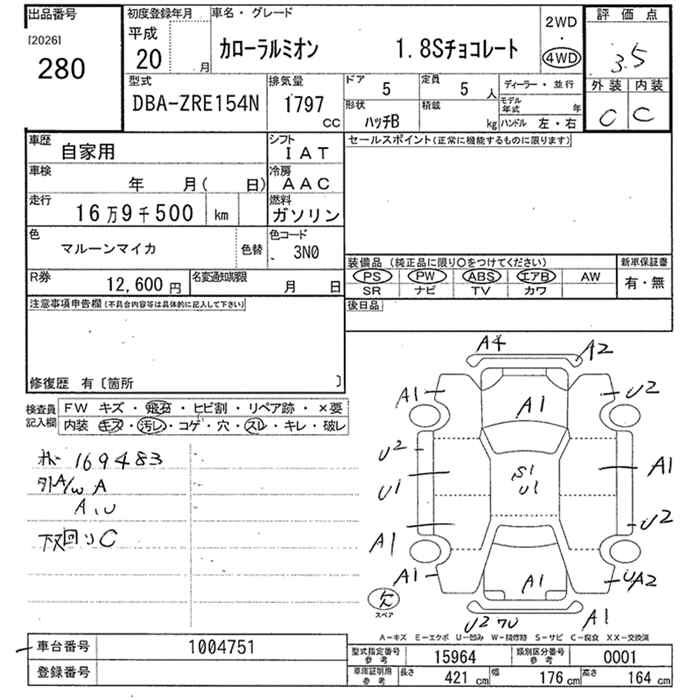 出品番号
[2026]
280
初度登録年月
平成
20
月
車名・グレード
カローラルミオン 1.8Sチョコレート
2WD
・
4WD
評価点
3.5
外装 内装
C C
型式
DBA-ZRE154N
排気量
1797
CC
ドア
5
定員
5 人
形状
ハッチB
積載
kg
ディーラー・並行
モデル年式 年
ハンドル 左・右
車歴
自家用
シフト
IAT
車検
年 月( 日)
冷房
AAC
走行
16万9千500 km
燃料
ガソリン
色
マルーンマイカ
色替
色コード
3N0
R券
12,600 円
名変通知期限
月 日
セールスポイント(正常に機能するものに限ります)
装備品 (純正品に限り○をつけてください)
PS PW ABS エアB AW
SR ナビ TV カワ
新車保証書
有・無
後日品
注意事項申告欄(不具合内容等は具体的に記入して下さい)
修復歴 有〔箇所 〕
検査員記入欄
FW キズ・飛石・ヒビ割・リペア跡・×要
内装 キズ・汚レ・コゲ・穴・スレ・キレ・破レ
169483
A/W A
A,U
下回りC
A4
A2
A1
A1
U2
U2
U1
S1
U1
A1
U2
A1
A1
A1
UA2
U2
A1
スペア
A-キズ E-エクボ U-凹み W-補修跡 S-サビ C-腐食 XX-交換済
車台番号
1004751
登録番号
型式指定番号
参考
15964
類別区分番号
参考
0001
車庫証明用
参考
長さ
421 cm
幅
176 cm
高さ
164 cm